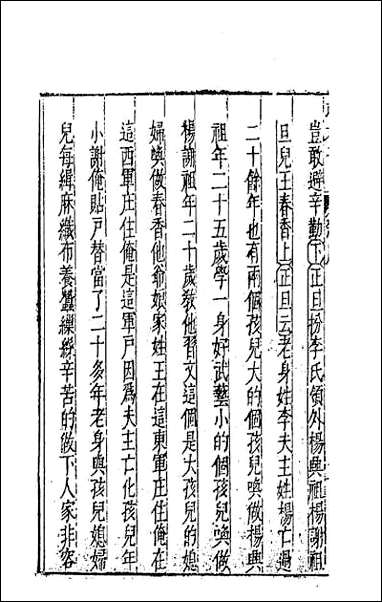 豈敢避辛勤下正旦扮李氏領外楊興祖楊謝祖
旦兒王春香上正旦云老身姓李夫主姓楊亡過
二十餘年也有兩個孩兒大的個孩兒喚做楊興
祖年二十五歲學一身好武藝小的個孩兒喚做
楊謝祖年二十歲敎他習文這個是大孩兒的媳
婦喚做春香他爺娘家姓王在這東軍庄住俺在
這西軍庄住俺是這軍戶因爲夫主亡化孩兒年
小謝俺貼戶替當了二十多年老身與孩兒媳婦
兒每緝麻織布養蠶繅絲辛苦的做下人家非容